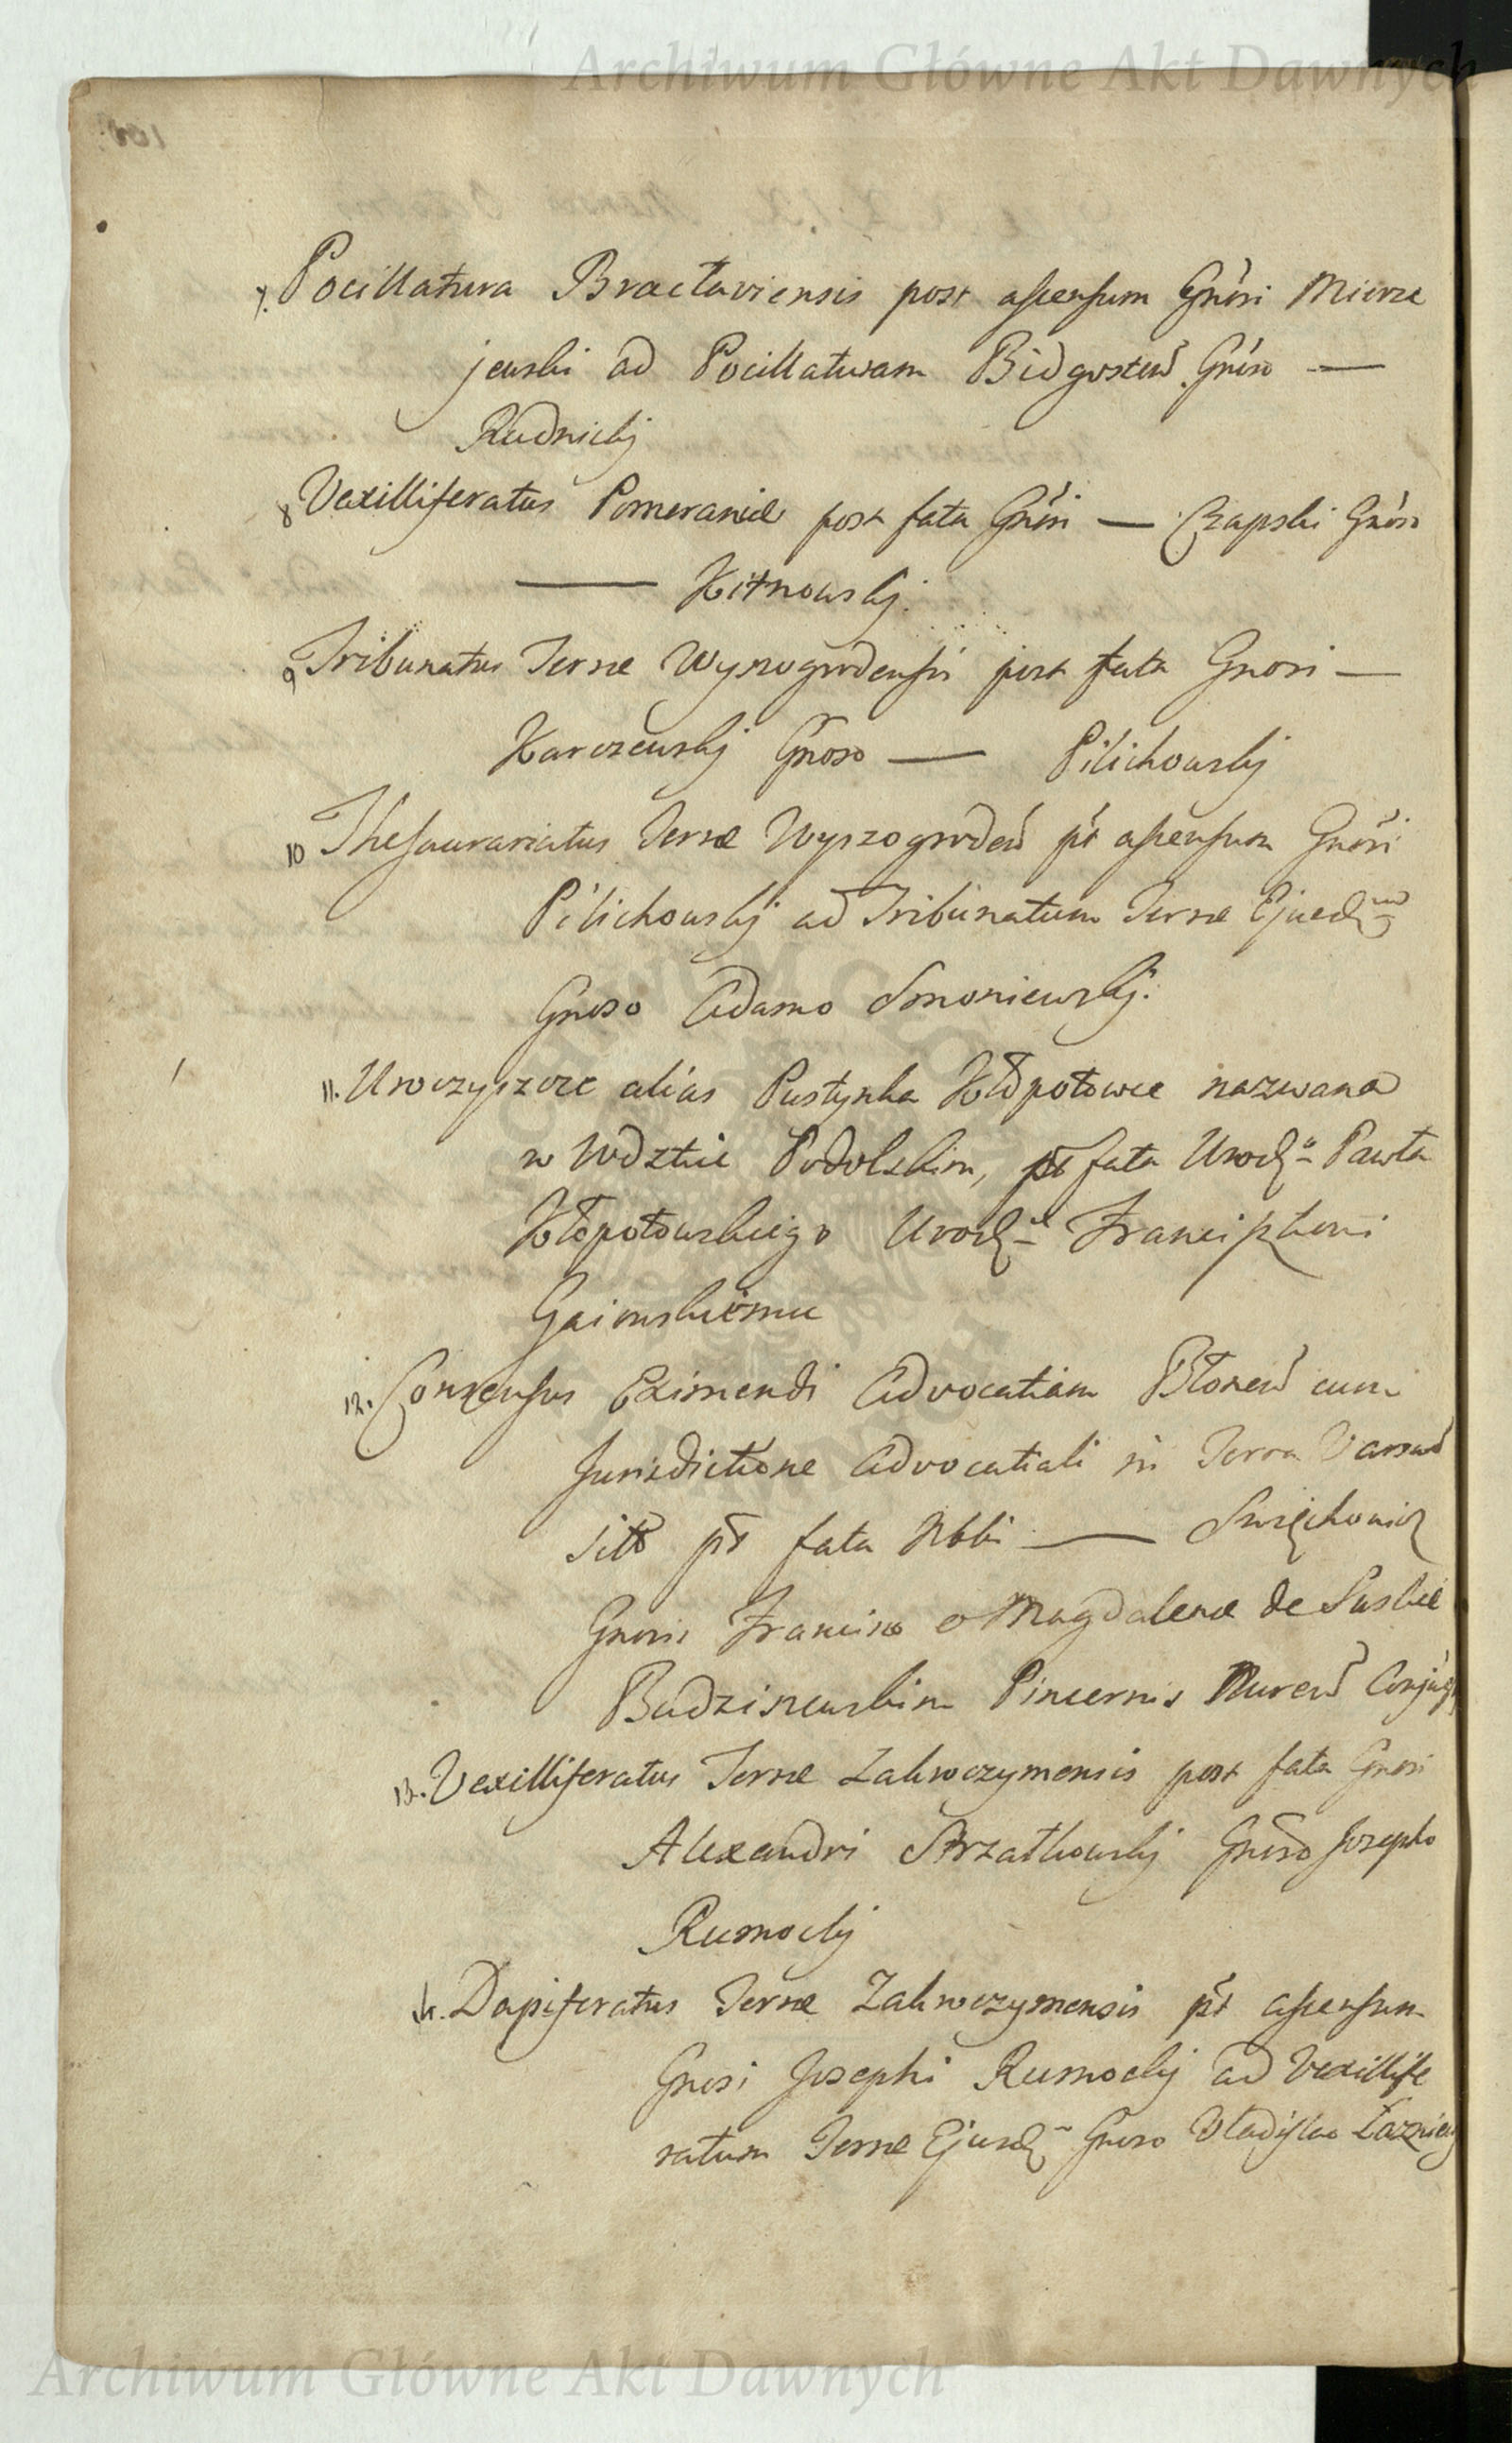 Archiwum Główne Akt Dawnych
7. Pocillatura Bracłaviensis post ascensum Gnŏsi Mierze
jewski ad Pocillaturam Bidgosteñ Gnŏso —
Rudnickj
8 Vexilliferatus Pomeraniæ post fata Gnŏsi — Czapski Gnŏso
— Kitnowskj.
9 Tribunatus Terræ Wyszogrodensis post fata Gnosi —
Karczewskj Gnŏso — Pilichowskj
10 Thesaurariatus Terræ Wyszogrodeñ pt ascensum Gnŏsi
Pilichowskj ad Tribunatum Terræ Ejusdem
Gnoso Adamo Smoniewskj.
11. Uroczyszcze alias Pustynka Kłopotowce nazwana
w Wdztwie Podolskim, pt fata Urodz° Pawła
Kłopotowskiego Urodz Franciszkowi
Gaiewskiemu
12. Consensus Eximendi Advocatiam Błoneñ cum
Jurisdictione Advocatiali in Terra Varsav
sitt pt fata Nbli — Swięchowicz
Gnosis Francisco et Magdalenæ de Suskie
Budziszewskim Pincernis Nureñ Conjug
13. Vexilliferatus Terræ Zakroczymensis post fata Gnosi
Alexandri Strzałkowskj Gnŏso Josepho
Rumockj
14. Dapiferatus Terræ Zakroczymensis pt ascensum
Gnosi Josephi Rumockj ad Vexillife
ratum Terræ Ejusd Gnoso Vladislao Łazniew
Archiwum Główne Akt Dawnych